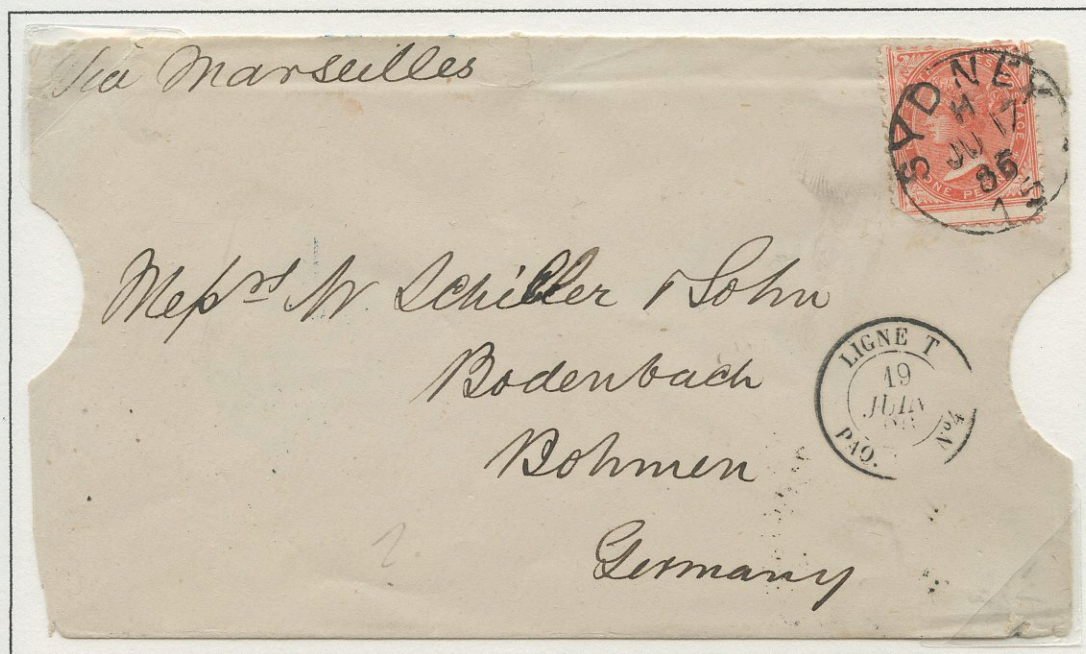 Via Marseilles
SYDNEY
H
JU 17
86
7
ONE PE
Messrs W Schiller & Sohn
Bodenbach
Bohmen
Germany
LIGNE T
19
JUIN
PAQ. No4